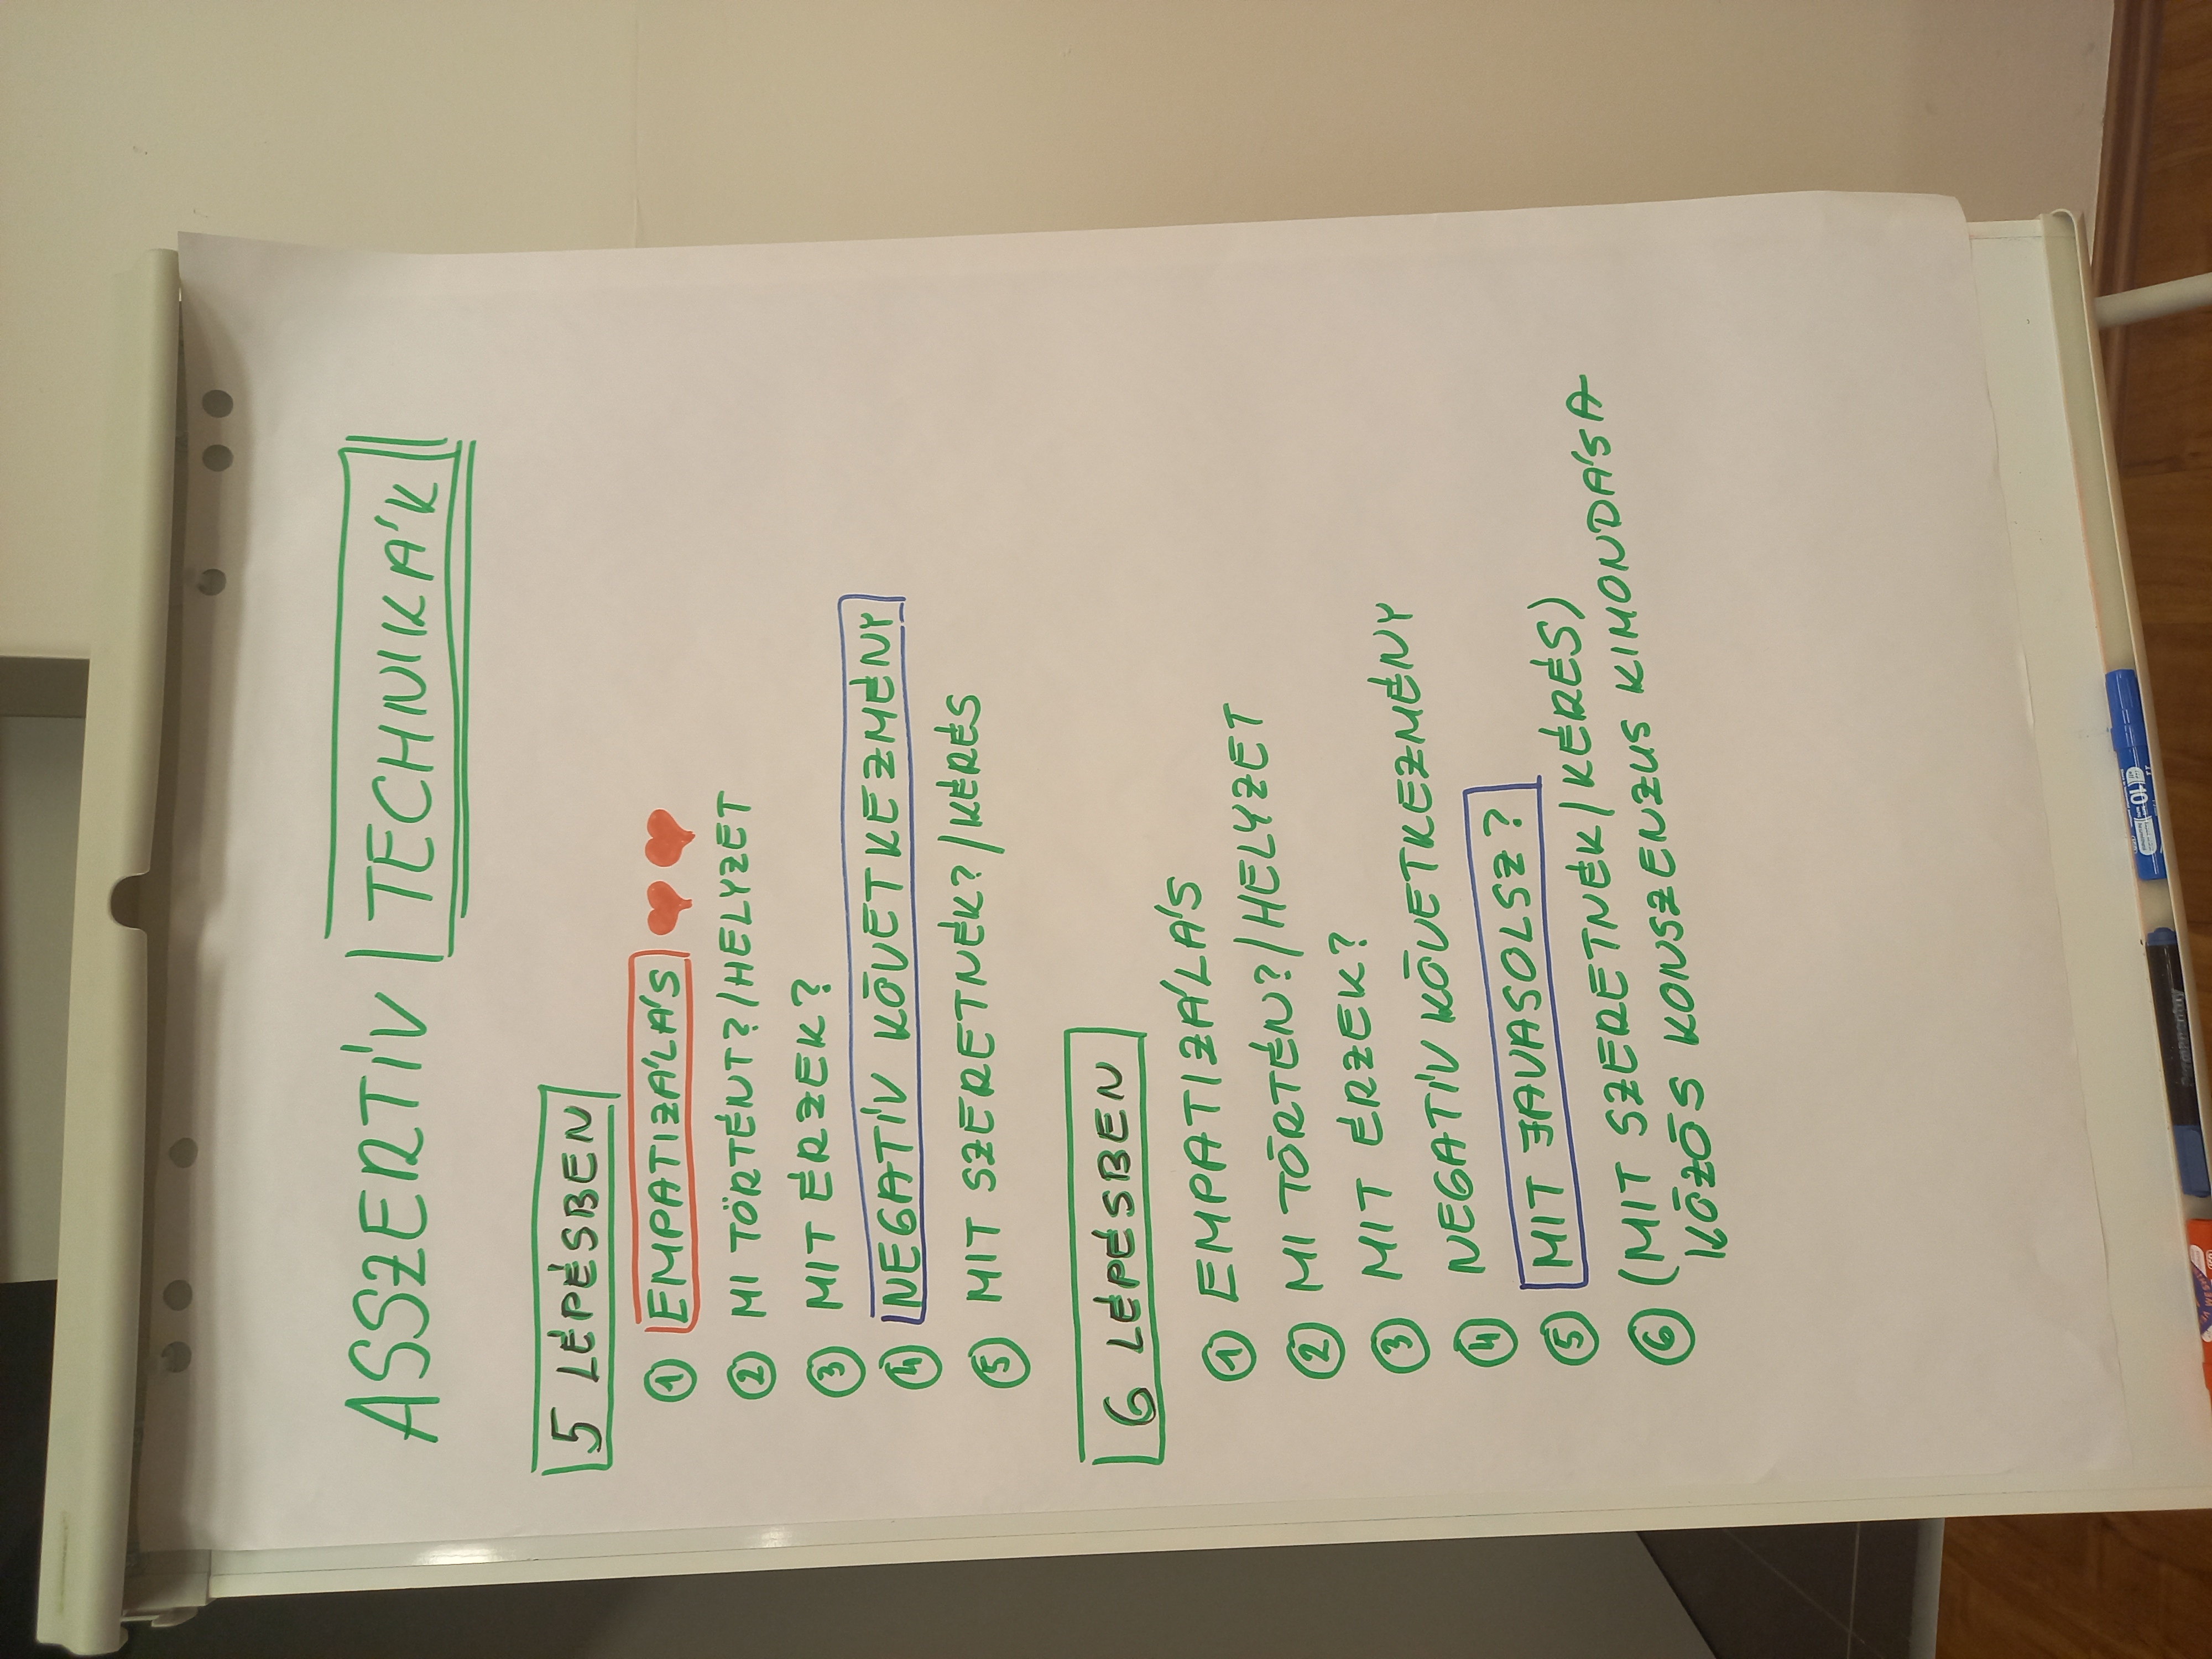 ASSZERTÍV TECHNIKÁK
5 LÉPÉSBEN
1 EMPATIZÁLÁS
2 MI TÖRTÉNT?/HELYZET
3 MIT ÉRZEK?
4 NEGATÍV KÖVETKEZMÉNY
5 MIT SZERETNÉK?/KÉRÉS
6 LÉPÉSBEN
1 EMPATIZÁLÁS
2 MI TÖRTÉN?/HELYZET
3 MIT ÉRZEK?
4 NEGATÍV KÖVETKEZMÉNY
5 MIT JAVASOLSZ?
6 (MIT SZERETNÉK/KÉRÉS)
KÖZÖS KONSZENZUS KIMONDÁSA